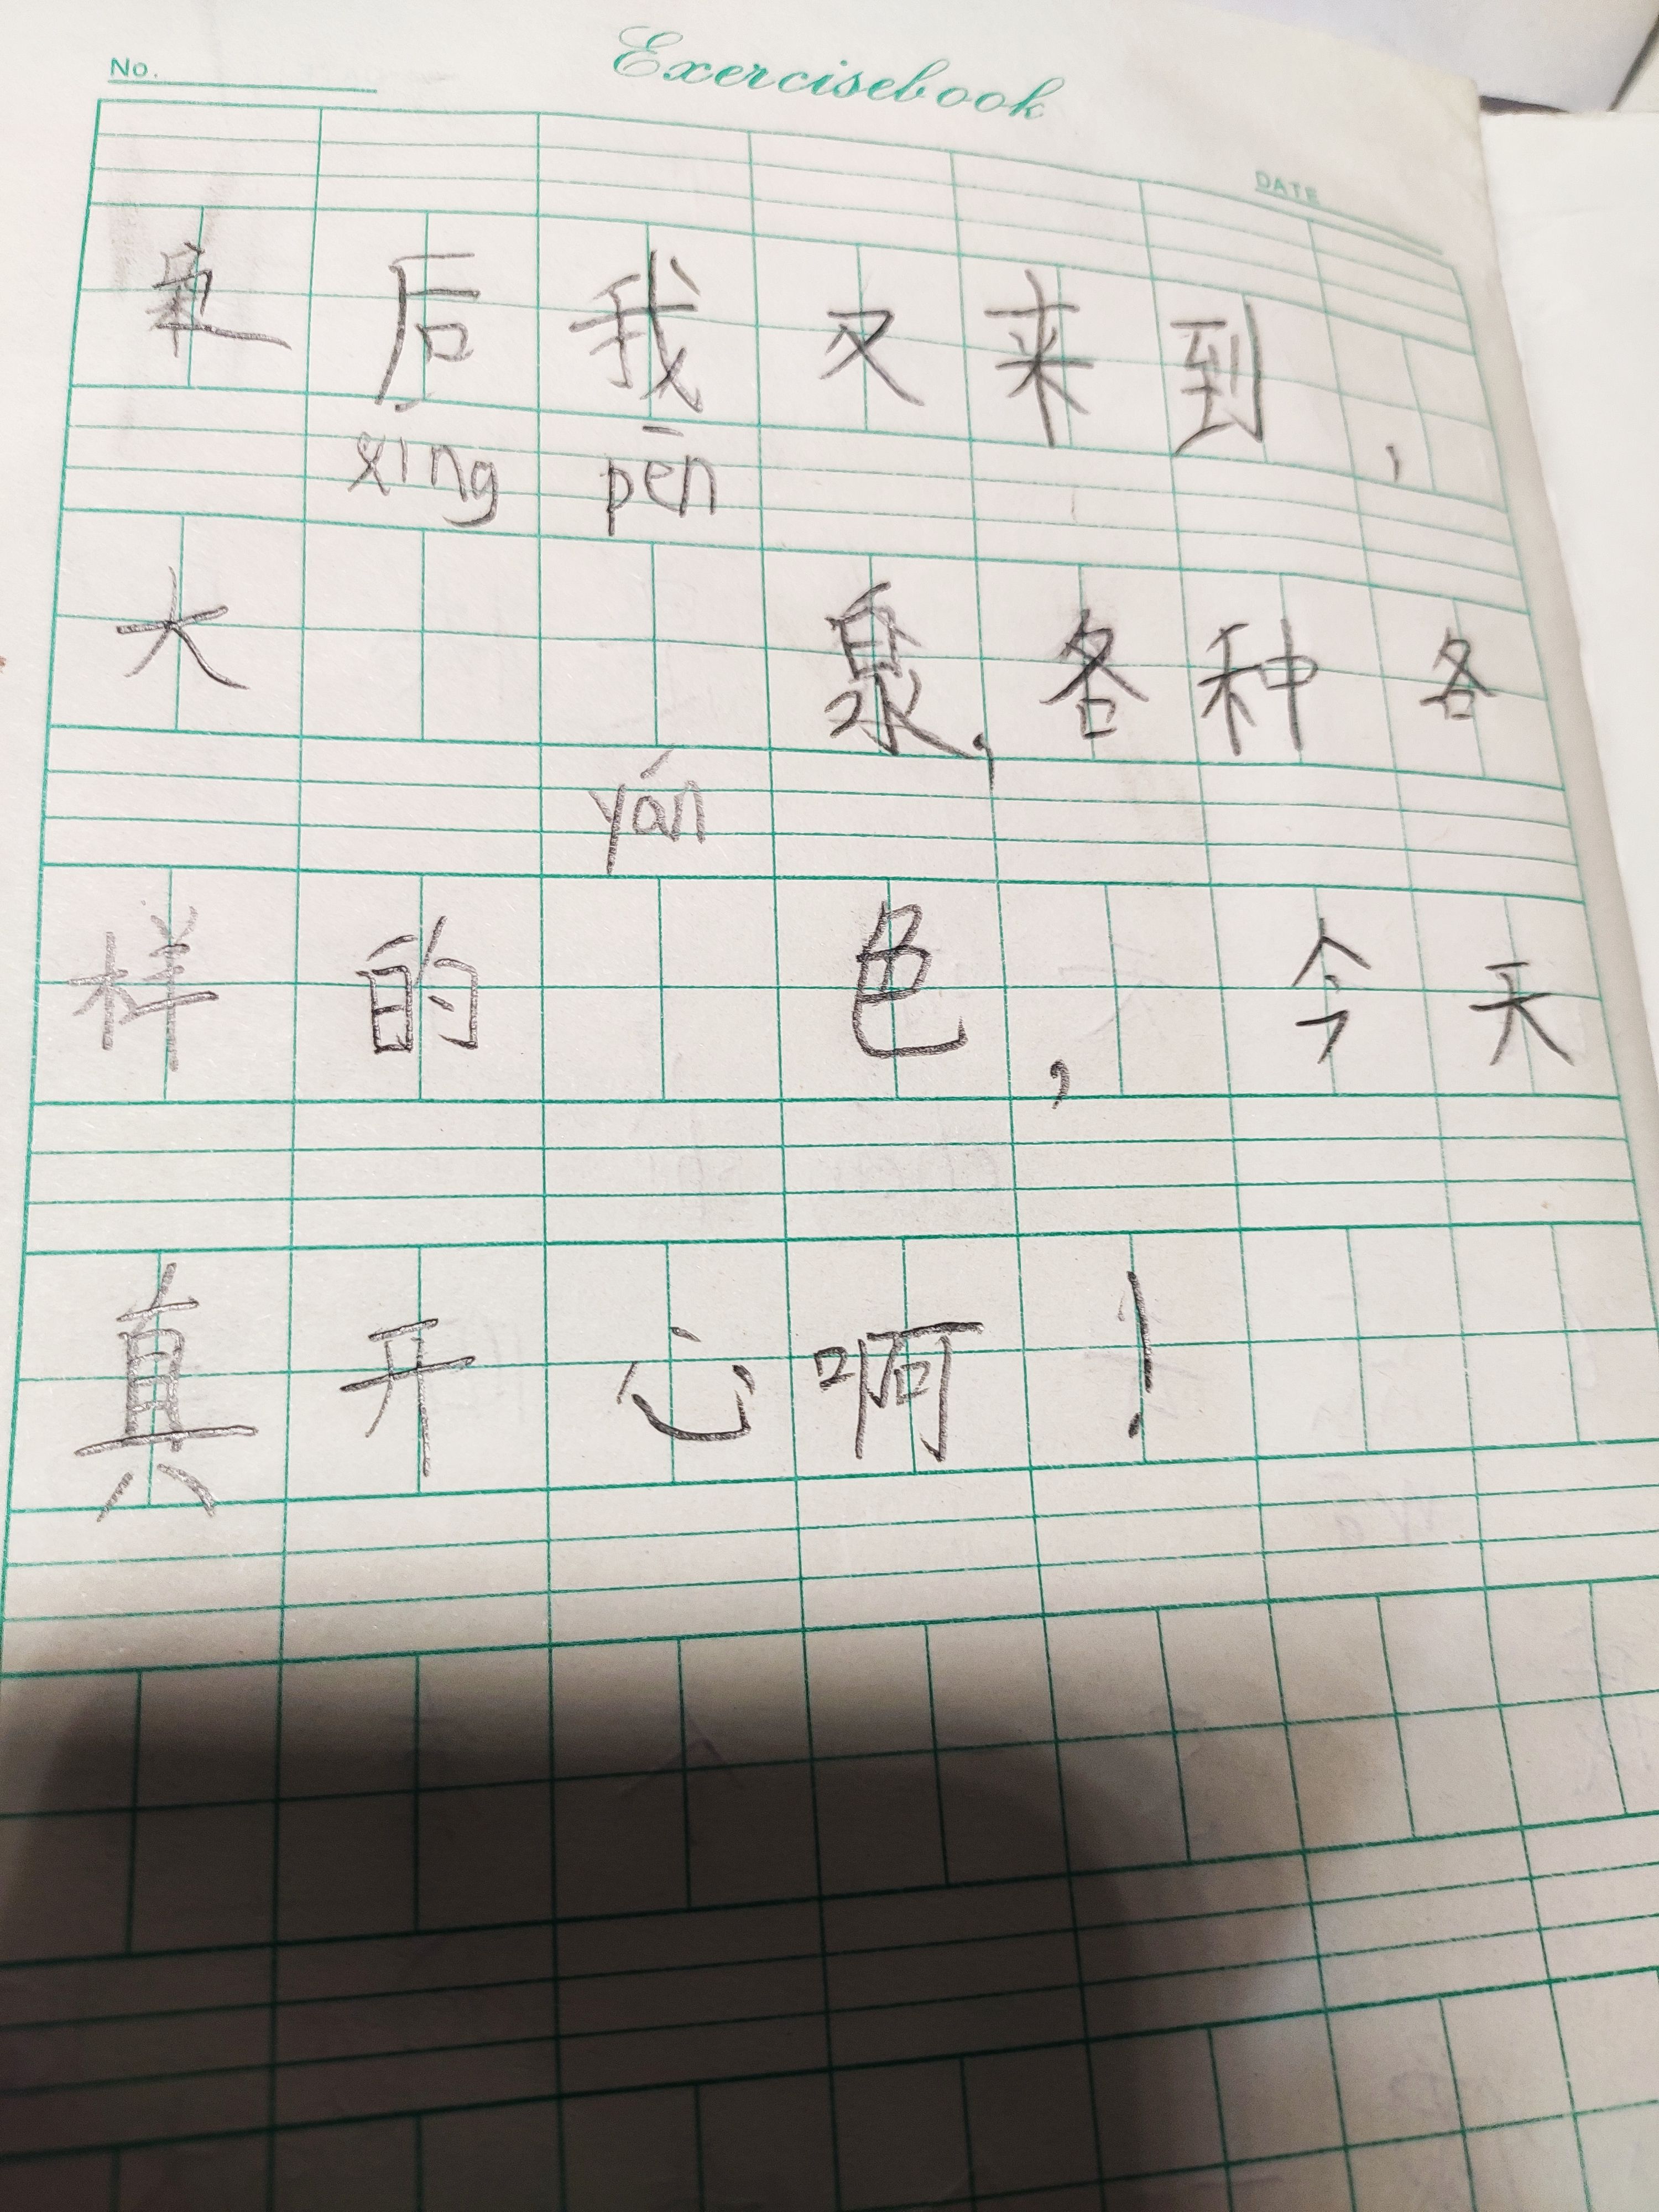 No.
Exercisebook
DATE
后我又来到,
xíng pēn
大 泉,各种各
yán
样的 色,今天
真开心啊!